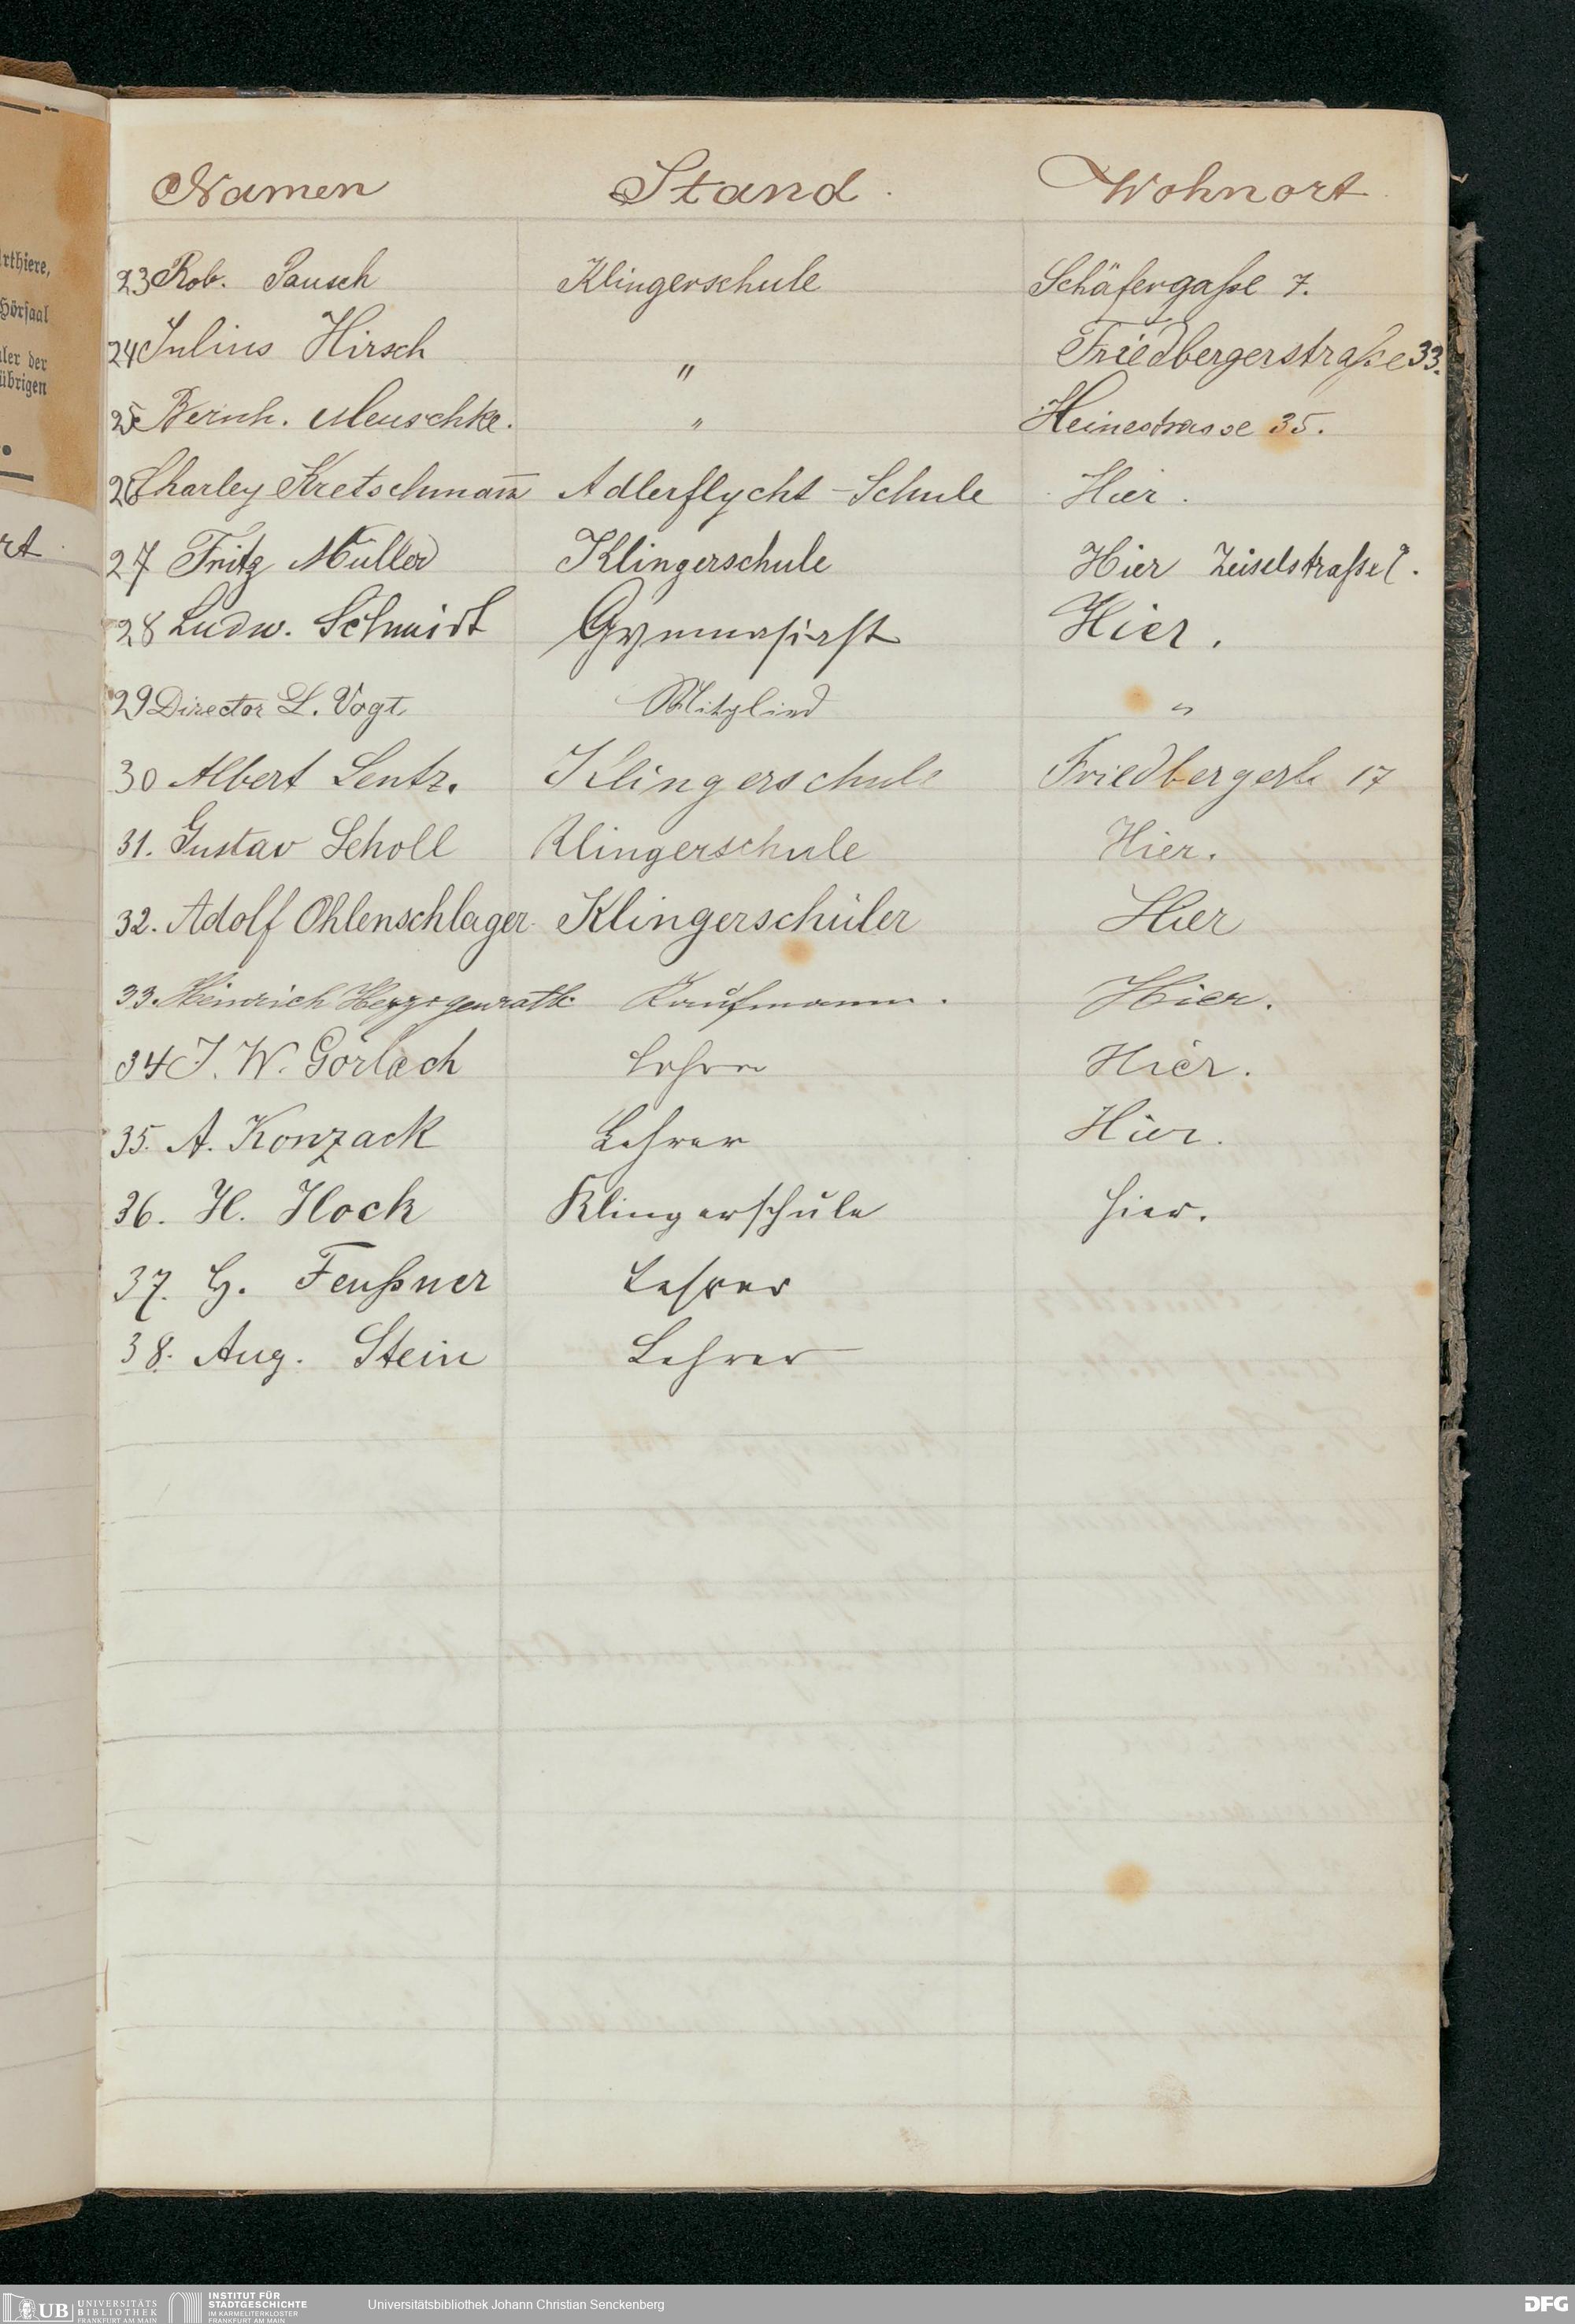 rthiere,
Hörsaal
ler der
übrigen
rt.
Namen Stand. Wohnort.
23 Rob. Pausch Klingerschule Schäfergaße 7.
24 Julius Hirsch " Friedbergerstraße 33.
25 Bernh. Meuschke. " Heinestrasse 35.
26 Charley Kretschmam̅ Adlerflycht-Schule Hier.
27 Fritz Müller Klingerschule Hier
28 Ludw. Schmidt Gymnasiast Hier.
29 Director L. Vogt Mitglied "
30 Albert Lentz. Klingerschule 17
31. Gustav Scholl Klingerschule Hier.
32. Adolf Ohlenschlager Klingerschüler Hier
33. Heinrich Herzogenrath Kaufmann. Hier.
34 J. W. Görlach Lehrer Hier.
35. A. Konzack Lehrer Hier.
36. H. Hock Klingerschule hier.
37. H. Feußner Lehrer
38. Aug. Stein Lehrer
UB UNIVERSITÄTS BIBLIOTHEK FRANKFURT AM MAIN
INSTITUT FÜR STADTGESCHICHTE IM KARMELITERKLOSTER FRANKFURT AM MAIN
Universitätsbibliothek Johann Christian Senckenberg
DFG